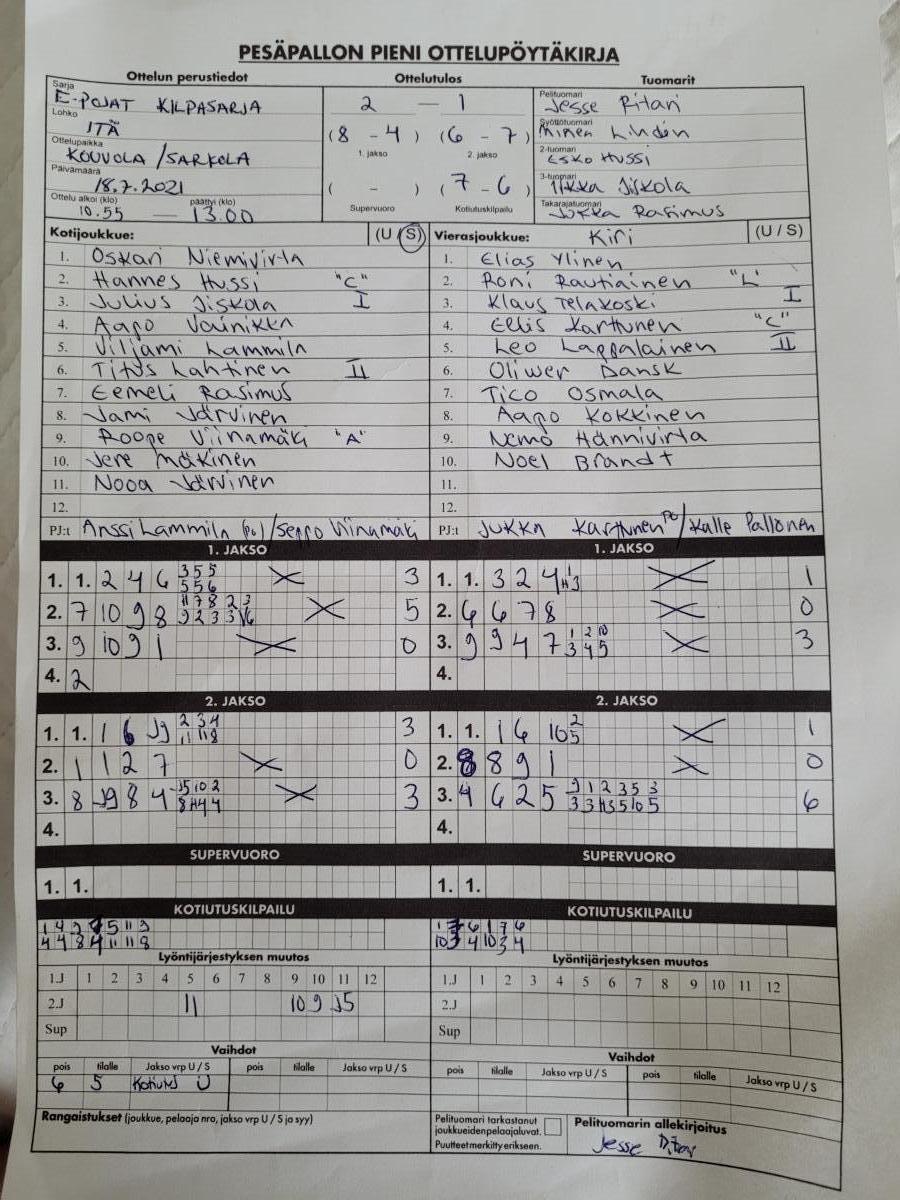 PESÄPALLON PIENI OTTELUPÖYTÄKIRJA
Ottelun perustiedot Ottelutulos Tuomarit
Sarja
E-POJAT KILPASARJA
Lohko
ITÄ
Ottelupaikka
KOUVOLA / SARKOLA
Päivämäärä
18.7.2021
Ottelu alkoi (klo) päättyi (klo)
10.55 — 13.00
2 — 1
(8 - 4) (6 - 7)
1. jakso 2. jakso
( - ) (7 - 6)
Supervuoro Kotiutuskilpailu
Pelituomari
Jesse Ritari
Syöttötuomari
Minen Lindén
2-tuomari
Esko Hussi
3-tuomari
Ilkka Jiskola
Takarajatuomari
Jukka Rasimus
Kotijoukkue: (U / S)
1. Oskari Niemivirta
2. Hannes Hussi "C"
3. Julius Jiskola I
4. Aapo Vainikka
5. Viljami Lammila
6. Titus Lahtinen II
7. Eemeli Rasimus
8. Jami Järvinen
9. Roope Viinamäki "A"
10. Jere Mäkinen
11. Nooa Järvinen
12.
PJ:t Anssi Lammila (PO) / Seppo Viinamäki
Vierasjoukkue: Kiri (U / S)
1. Elias Ylinen
2. Roni Rautiainen "L"
3. Klaus Telakoski I
4. Ellis Karttunen "C"
5. Leo Lappalainen II
6. Oliwer Dansk
7. Tico Osmala
8. Aapo Kokkinen
9. Nemo Hännivirta
10. Noel Brandt
11.
12.
PJ:t Jukka Karttunen PO / Kalle Pallonen
1. JAKSO
1. 1. 2 4 6 3 5 5 3
5 5 6
2. 7 10 9 8 11 7 8 2 3 5
9 2 3 3
3. 9 10 9 1 0
4. 2
1. JAKSO
1. 1. 3 2 4 1
2. 6 6 7 8 0
3. 9 9 4 7 1 2 10 3
3 4 5
4.
2. JAKSO
1. 1. 1 6 J9 2 3 4 3
11 11 8
2. 1 1 2 7 0
3. 8 J9 8 4 J5 10 2 3
8 4 4
4.
2. JAKSO
1. 1. 1 6 10 2 1
5
2. 8 8 9 1 0
3. 4 6 2 5 9 1 2 3 5 3 6
3 3 5 10 5
4.
SUPERVUORO
1. 1.
SUPERVUORO
1. 1.
KOTIUTUSKILPAILU
1 4 3 5 11 3
4 4 8 4 11 11 8
KOTIUTUSKILPAILU
1 6 1 7 6
10 3 4 10 3 4
Lyöntijärjestyksen muutos
1.J 1 2 3 4 5 6 7 8 9 10 11 12
2.J 11 10 9 J5
Sup
Lyöntijärjestyksen muutos
1.J 1 2 3 4 5 6 7 8 9 10 11 12
2.J
Sup
Vaihdot
pois tilalle Jakso vrp U / S pois tilalle Jakso vrp U / S
6 5 U
Vaihdot
pois tilalle Jakso vrp U / S pois tilalle Jakso vrp U / S
Rangaistukset (joukkue, pelaaja nro, jakso vrp U / S ja syy)
Pelituomari tarkastanut
joukkueiden pelaajaluvat.
Puutteet merkitty erikseen.
Pelituomarin allekirjoitus
Jesse Ritari